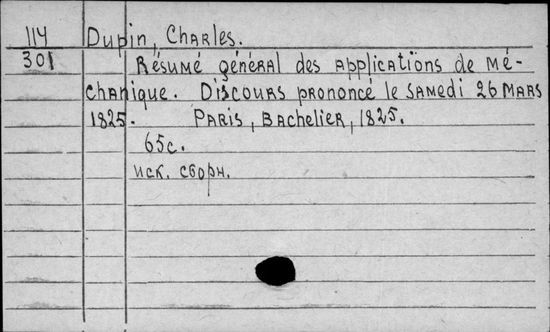 114 Dupin, Charles.
301 Résumé général des applications de mé-
chanique. Discours prononcé le samedi 26 mars
1825. Paris, Bachelier, 1825.
65с.
иск. сборн.